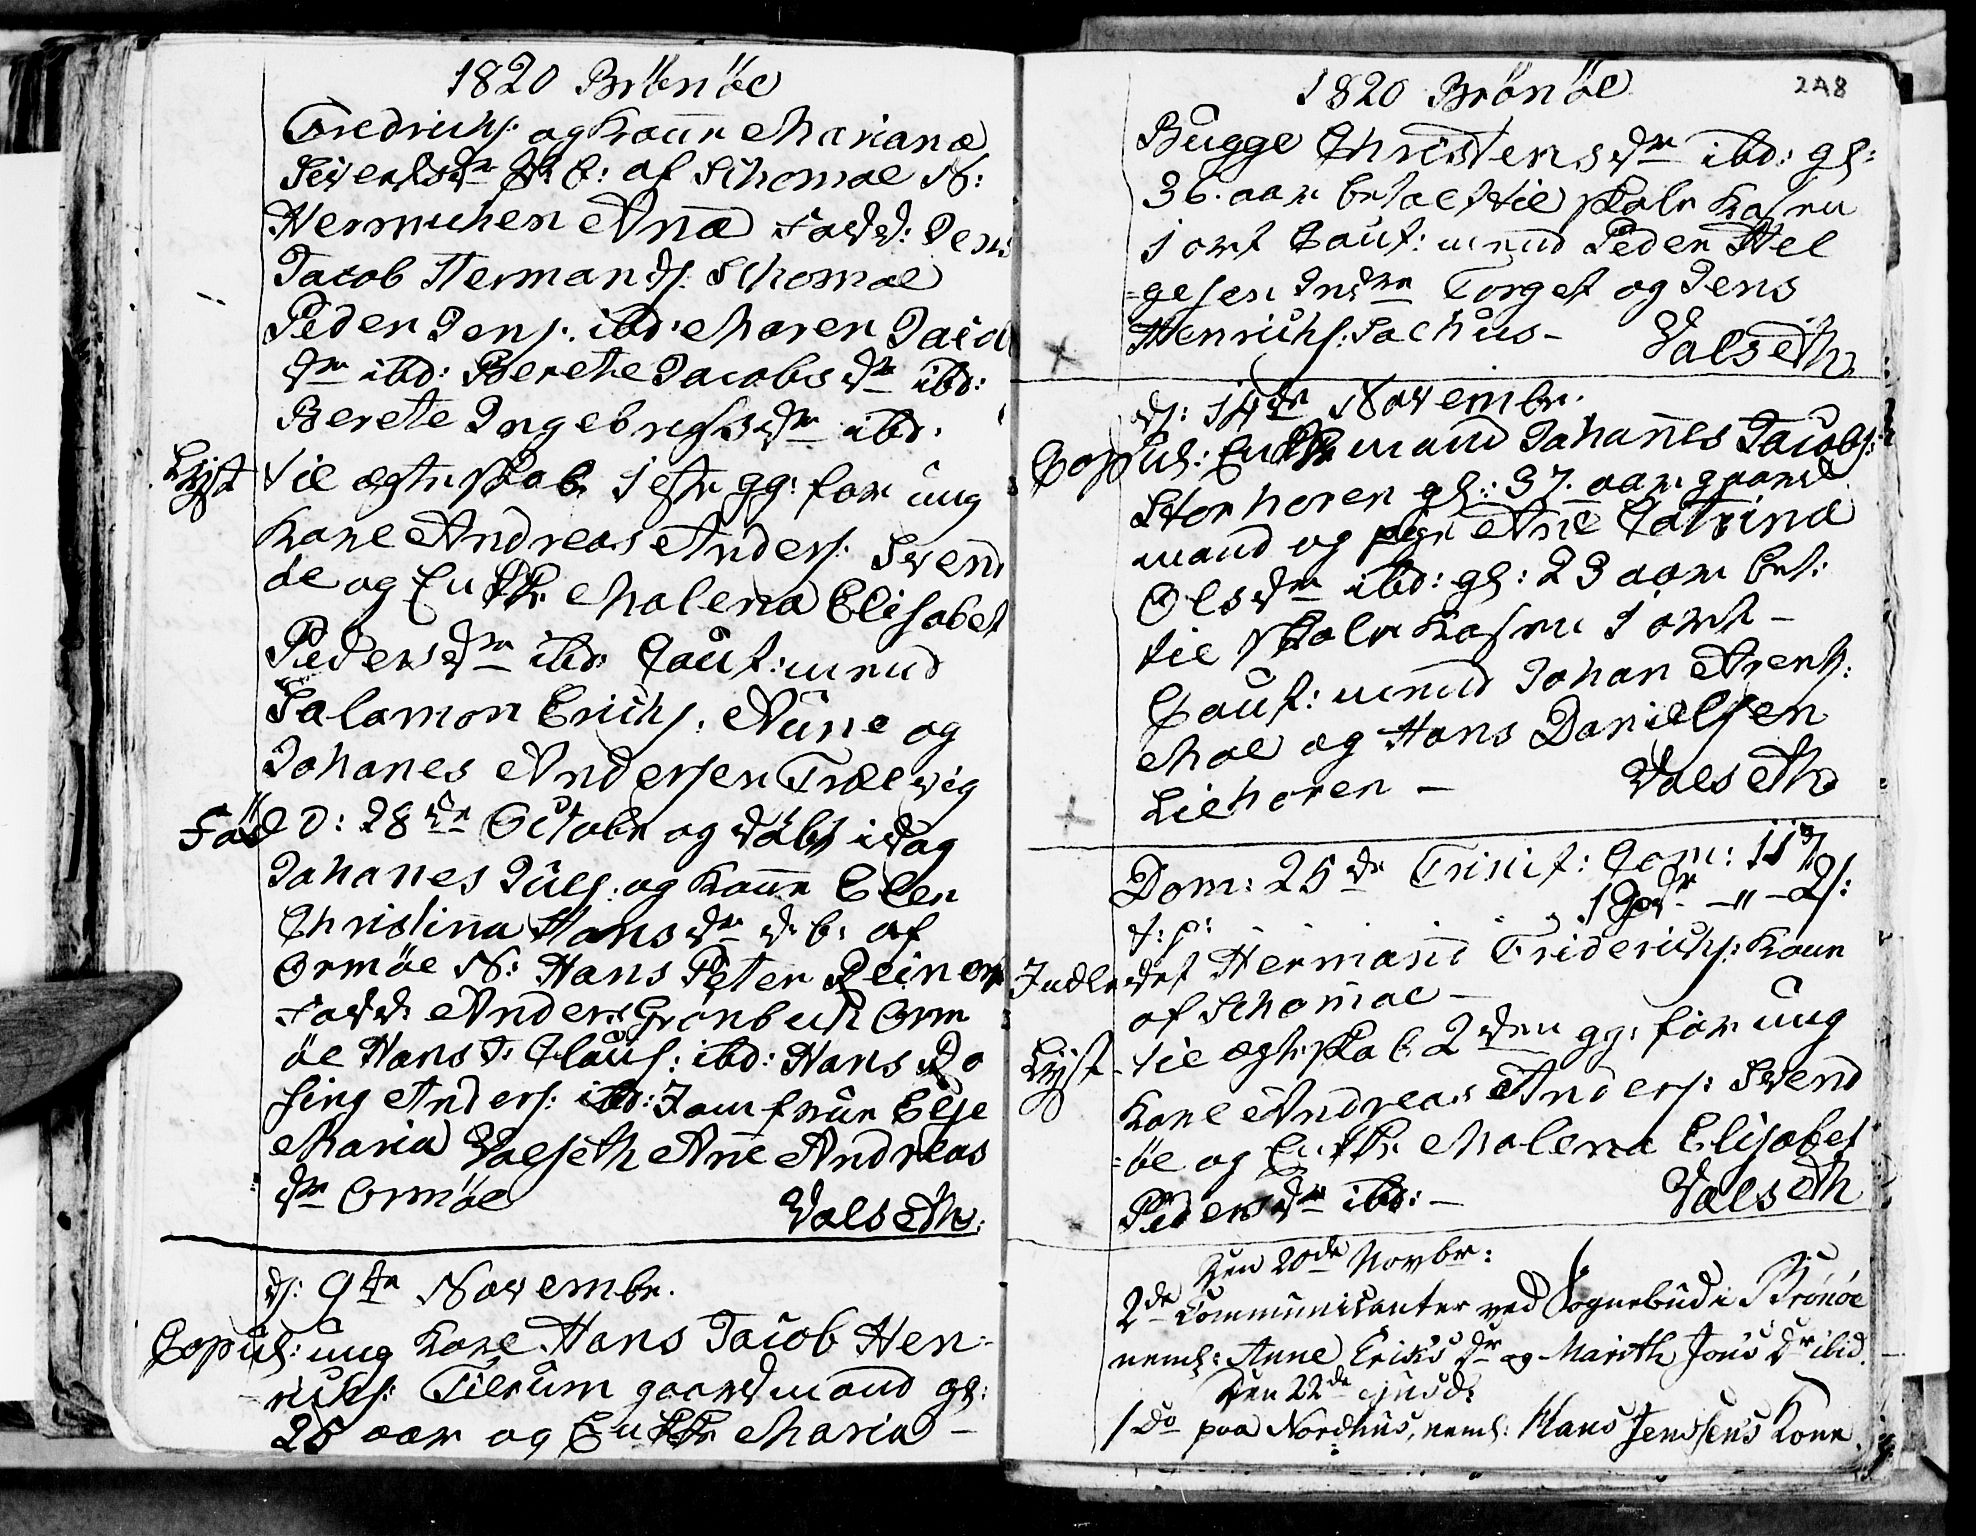 1820 Brönöe
Fredrichs: og Konne Mariana
Sivertsdr d: b: af Schomoe N:
Hennichen Ana Fadd: Jens
Jacob Hermands: Schomoe
Peder Jens: ibd: Maren Jacobs
dr ibd: Berete Jacobsdr ibd:
Berete Ingebrigtsdr ibd:
Lyst til ægteskab 1ste gg: for ung
Karl Andreas Anders: Svend
öe og Enkke Malena Elisabet
Pedersdr ibd: Caut: mend
Salamon Erichs: Nüne og
Johanes Andersen Trælvig
Föd D: 28de Octobr og döbt idag
Johanes Juls: og Konne Elen
Christina Hansdr d: b: af
Ormöe N: Hans Peter Reinert
Fadd: Anders Grönbech Orm
öe Hans T: Claus: ibd: Hans Ro
sing Anders: ibd: Jomfrue Else
Maria Valseth Ane Andreas
dr Ormöe
Valseth:
d: 9de Novembr.
Copul: ung Karl Hans Jacob Hen-
richs: Tilrum gaardmand gl:
25 aar og Enkke Maria -
1820 Brönöe
248
Bugge Christensdr ibd: gl:
36 aar betalt til skole Kasen
1 ort Caut: mend Peder Hel
=gesen Indre Torget og Jens
Henrichs: Sachus -
Valseth
d: 14de Novembr.
Copul: Enkkemand Johanes Jacobs:
Storhoren gl: 37 aar gaard
mand og pge Ane Catrina
Olsdr ibd: gl: 23 aar bet:
til skole Kasen 1 ort -
Caut: mend Johan Arents:
Moe og Hans Danielsen
Liehoren -
Valseth
Dom: 25de Trinit: Com: 117
d: s:
Indledet Hermand Friderichs: Kone
af Schomoe -
Lyst til ægteskab 2den gg: for ung
Karl Andreas Anders: Svend
=öe og Enkke Malena Elisabet
Pedersdr ibd: -
Valseth
Den 20de Novbr:
2de Communicanter ved Sognebud i Brönöe
neml: Anne Eriks Dr og Marith Jons Dr ibid.
Den 22de ejusd:
1 Do paa Nordhus, neml: Hans Jenssens Kone.